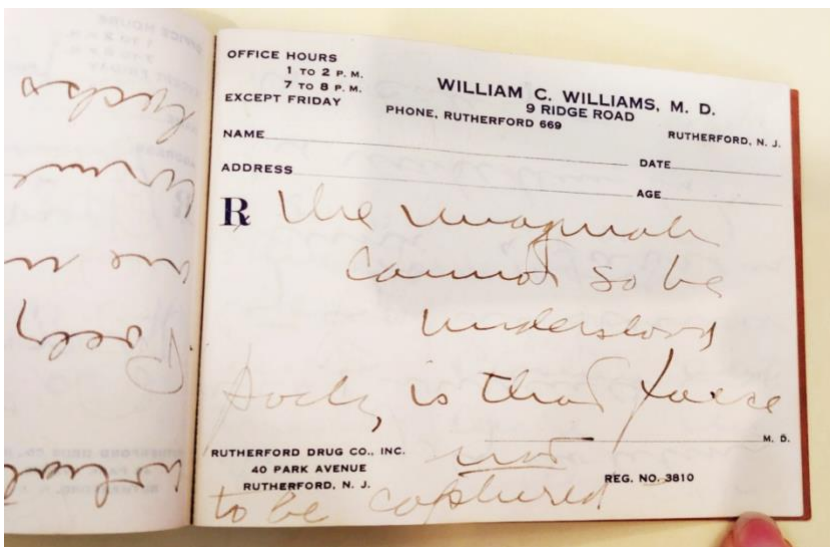 OFFICE HOURS
1 TO 2 P. M.
7 TO 8 P. M.
EXCEPT FRIDAY
WILLIAM C. WILLIAMS, M. D.
9 RIDGE ROAD
PHONE, RUTHERFORD 669
RUTHERFORD, N. J.
NAME
DATE
ADDRESS
AGE
℞ The
cannot so be
understood
is that force
M. D.
not
RUTHERFORD DRUG CO., INC.
40 PARK AVENUE
RUTHERFORD, N. J.
REG. NO. 3810
to be captured